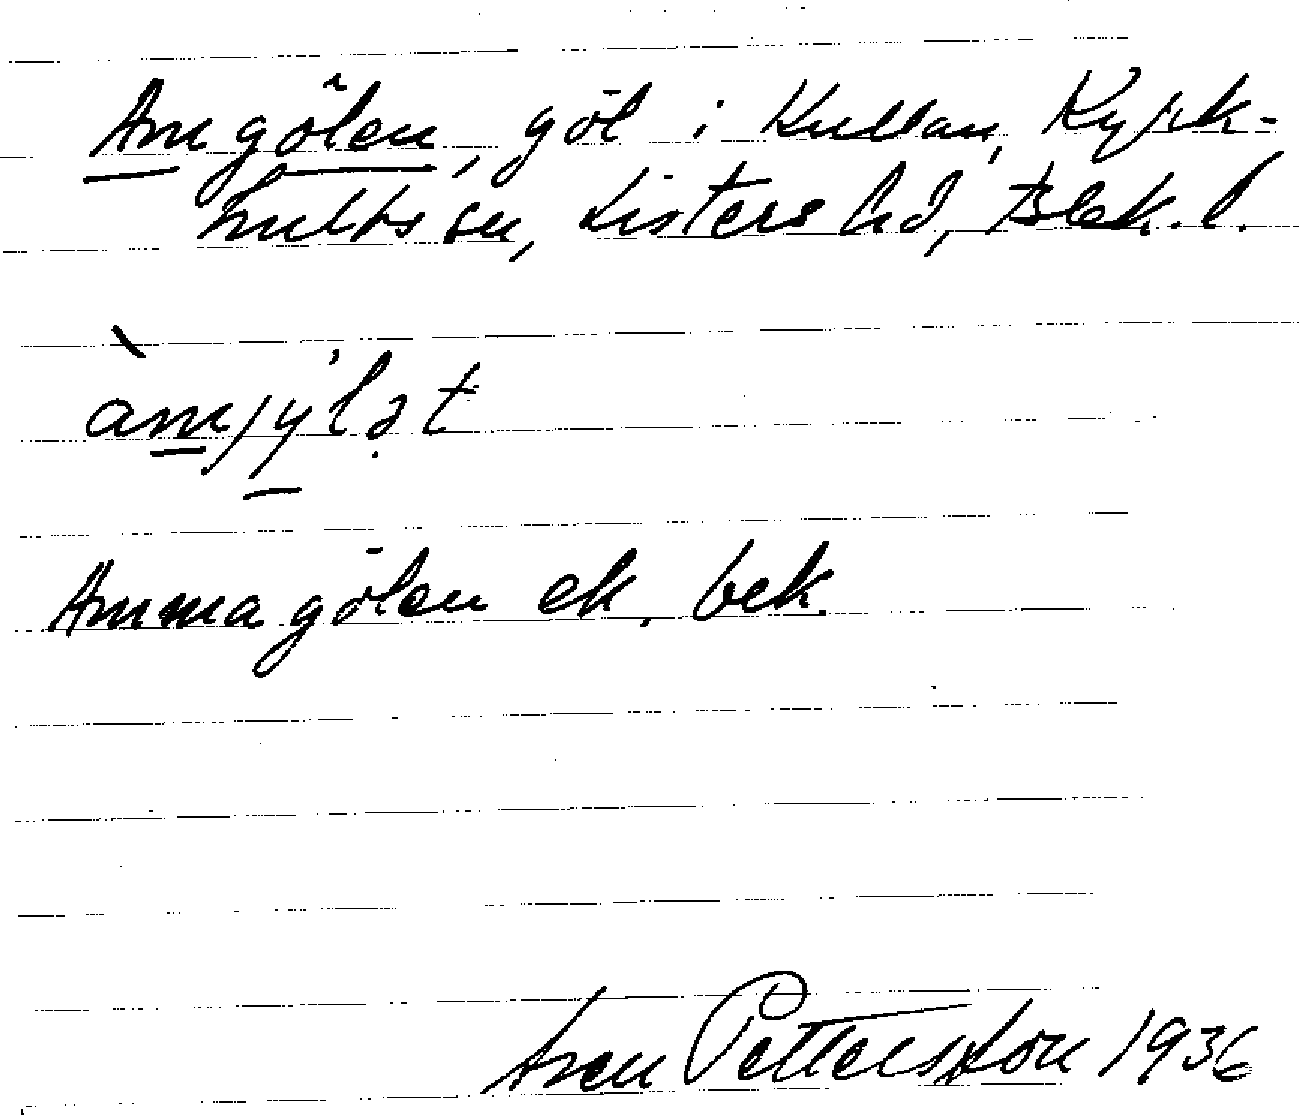 Amgölen, göl i Kullan, Kyrk-
hults sn, Listers hd, Blek. l.
àmjýlət
Ammagölen ek. bek.
Sven Pettersson 1936